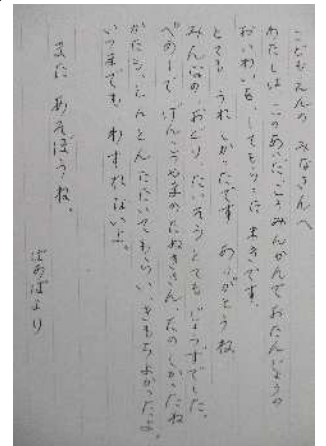 こどもえんの みなさんへ
わたしは このあいだ、こうみんかんで おたんじょうの
おいわいを、してもらった まきです。
とても うれしかったです ありがとうね
みんなの おどり、たいそう とても じょうずでした。
ぺめーで げんこつやまのたぬきさん、たのしかったね
かたを、とんとん たたいてもらい、きもちよかったよ。
いつまでも わすれないよ。
また あえるね。
ばあばより